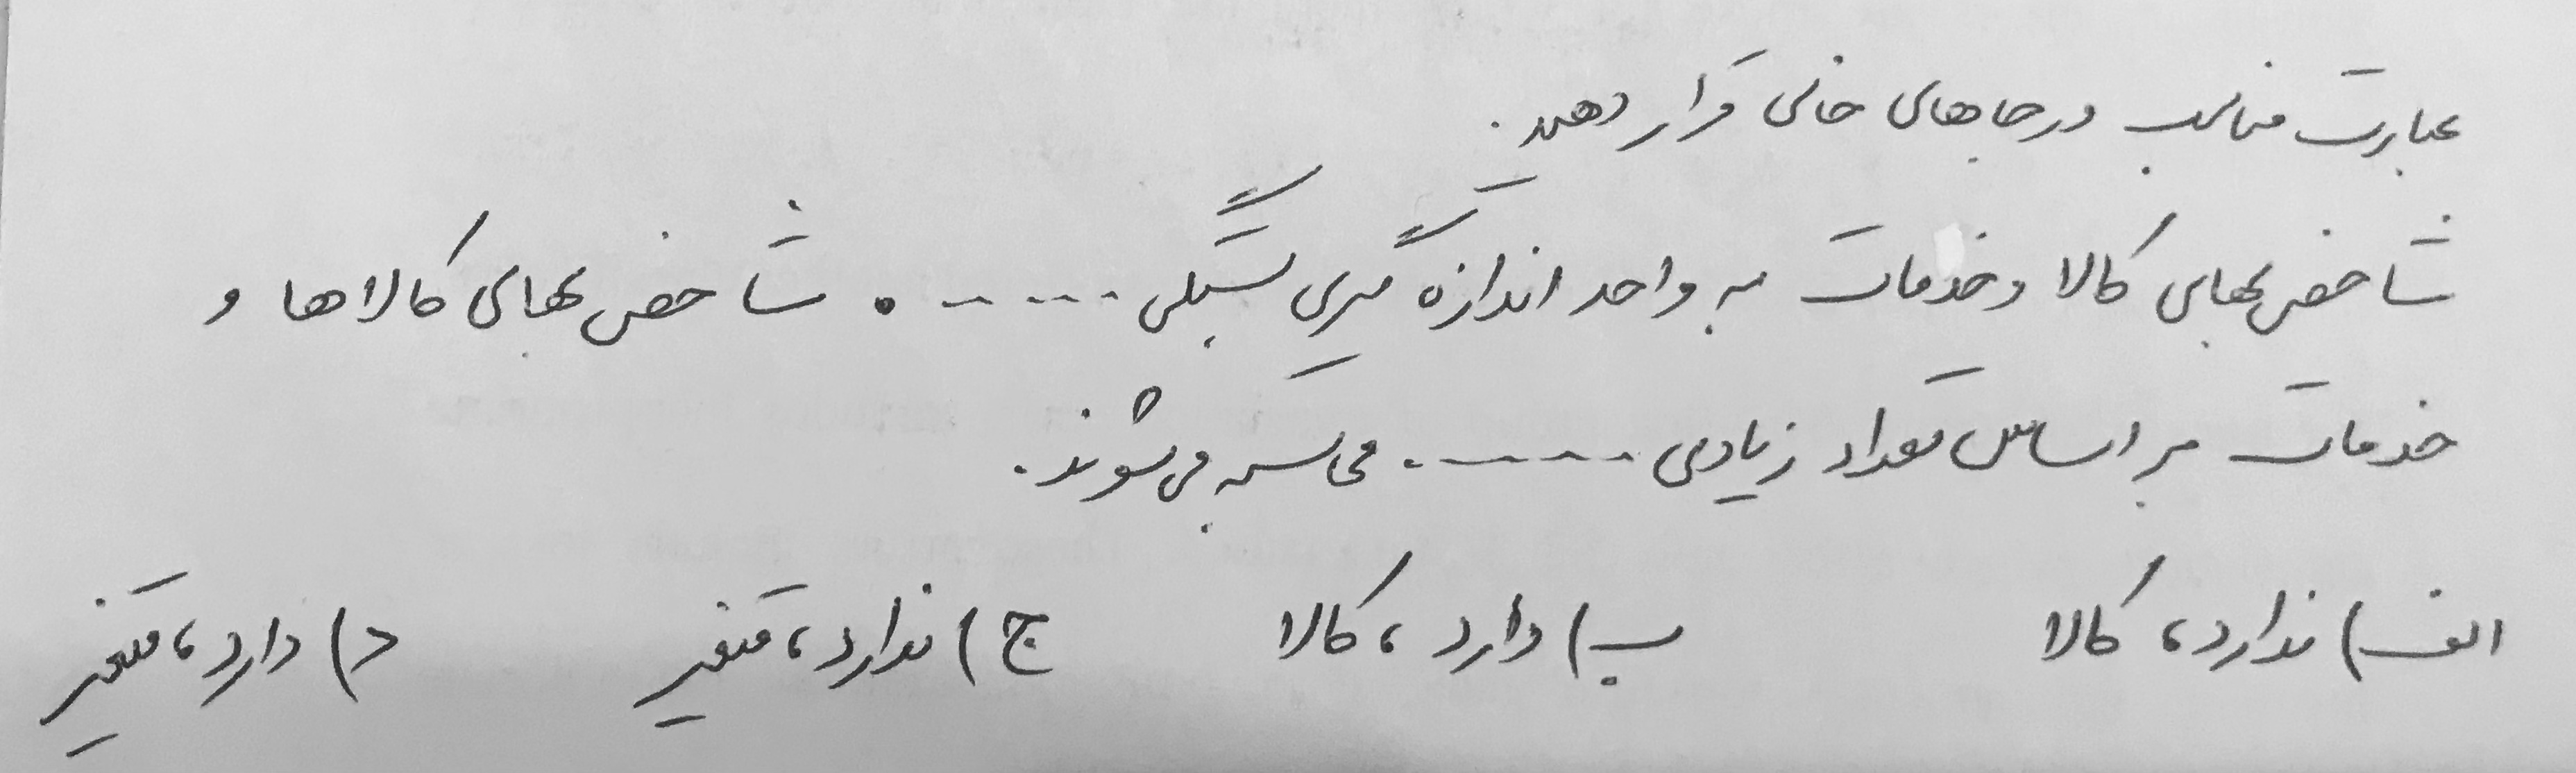 عبارت مناسب در جاهای خالی قرار دهید.
شاخص بهای کالا و خدمات به واحد اندازه گیری بستگی ...... . شاخص بهای کالاها و
خدمات بر اساس تعداد زیادی ...... محاسبه می شوند.
الف) ندارد، کالا ب) دارد، کالا ج) ندارد، متغیر د) دارد، متغیر